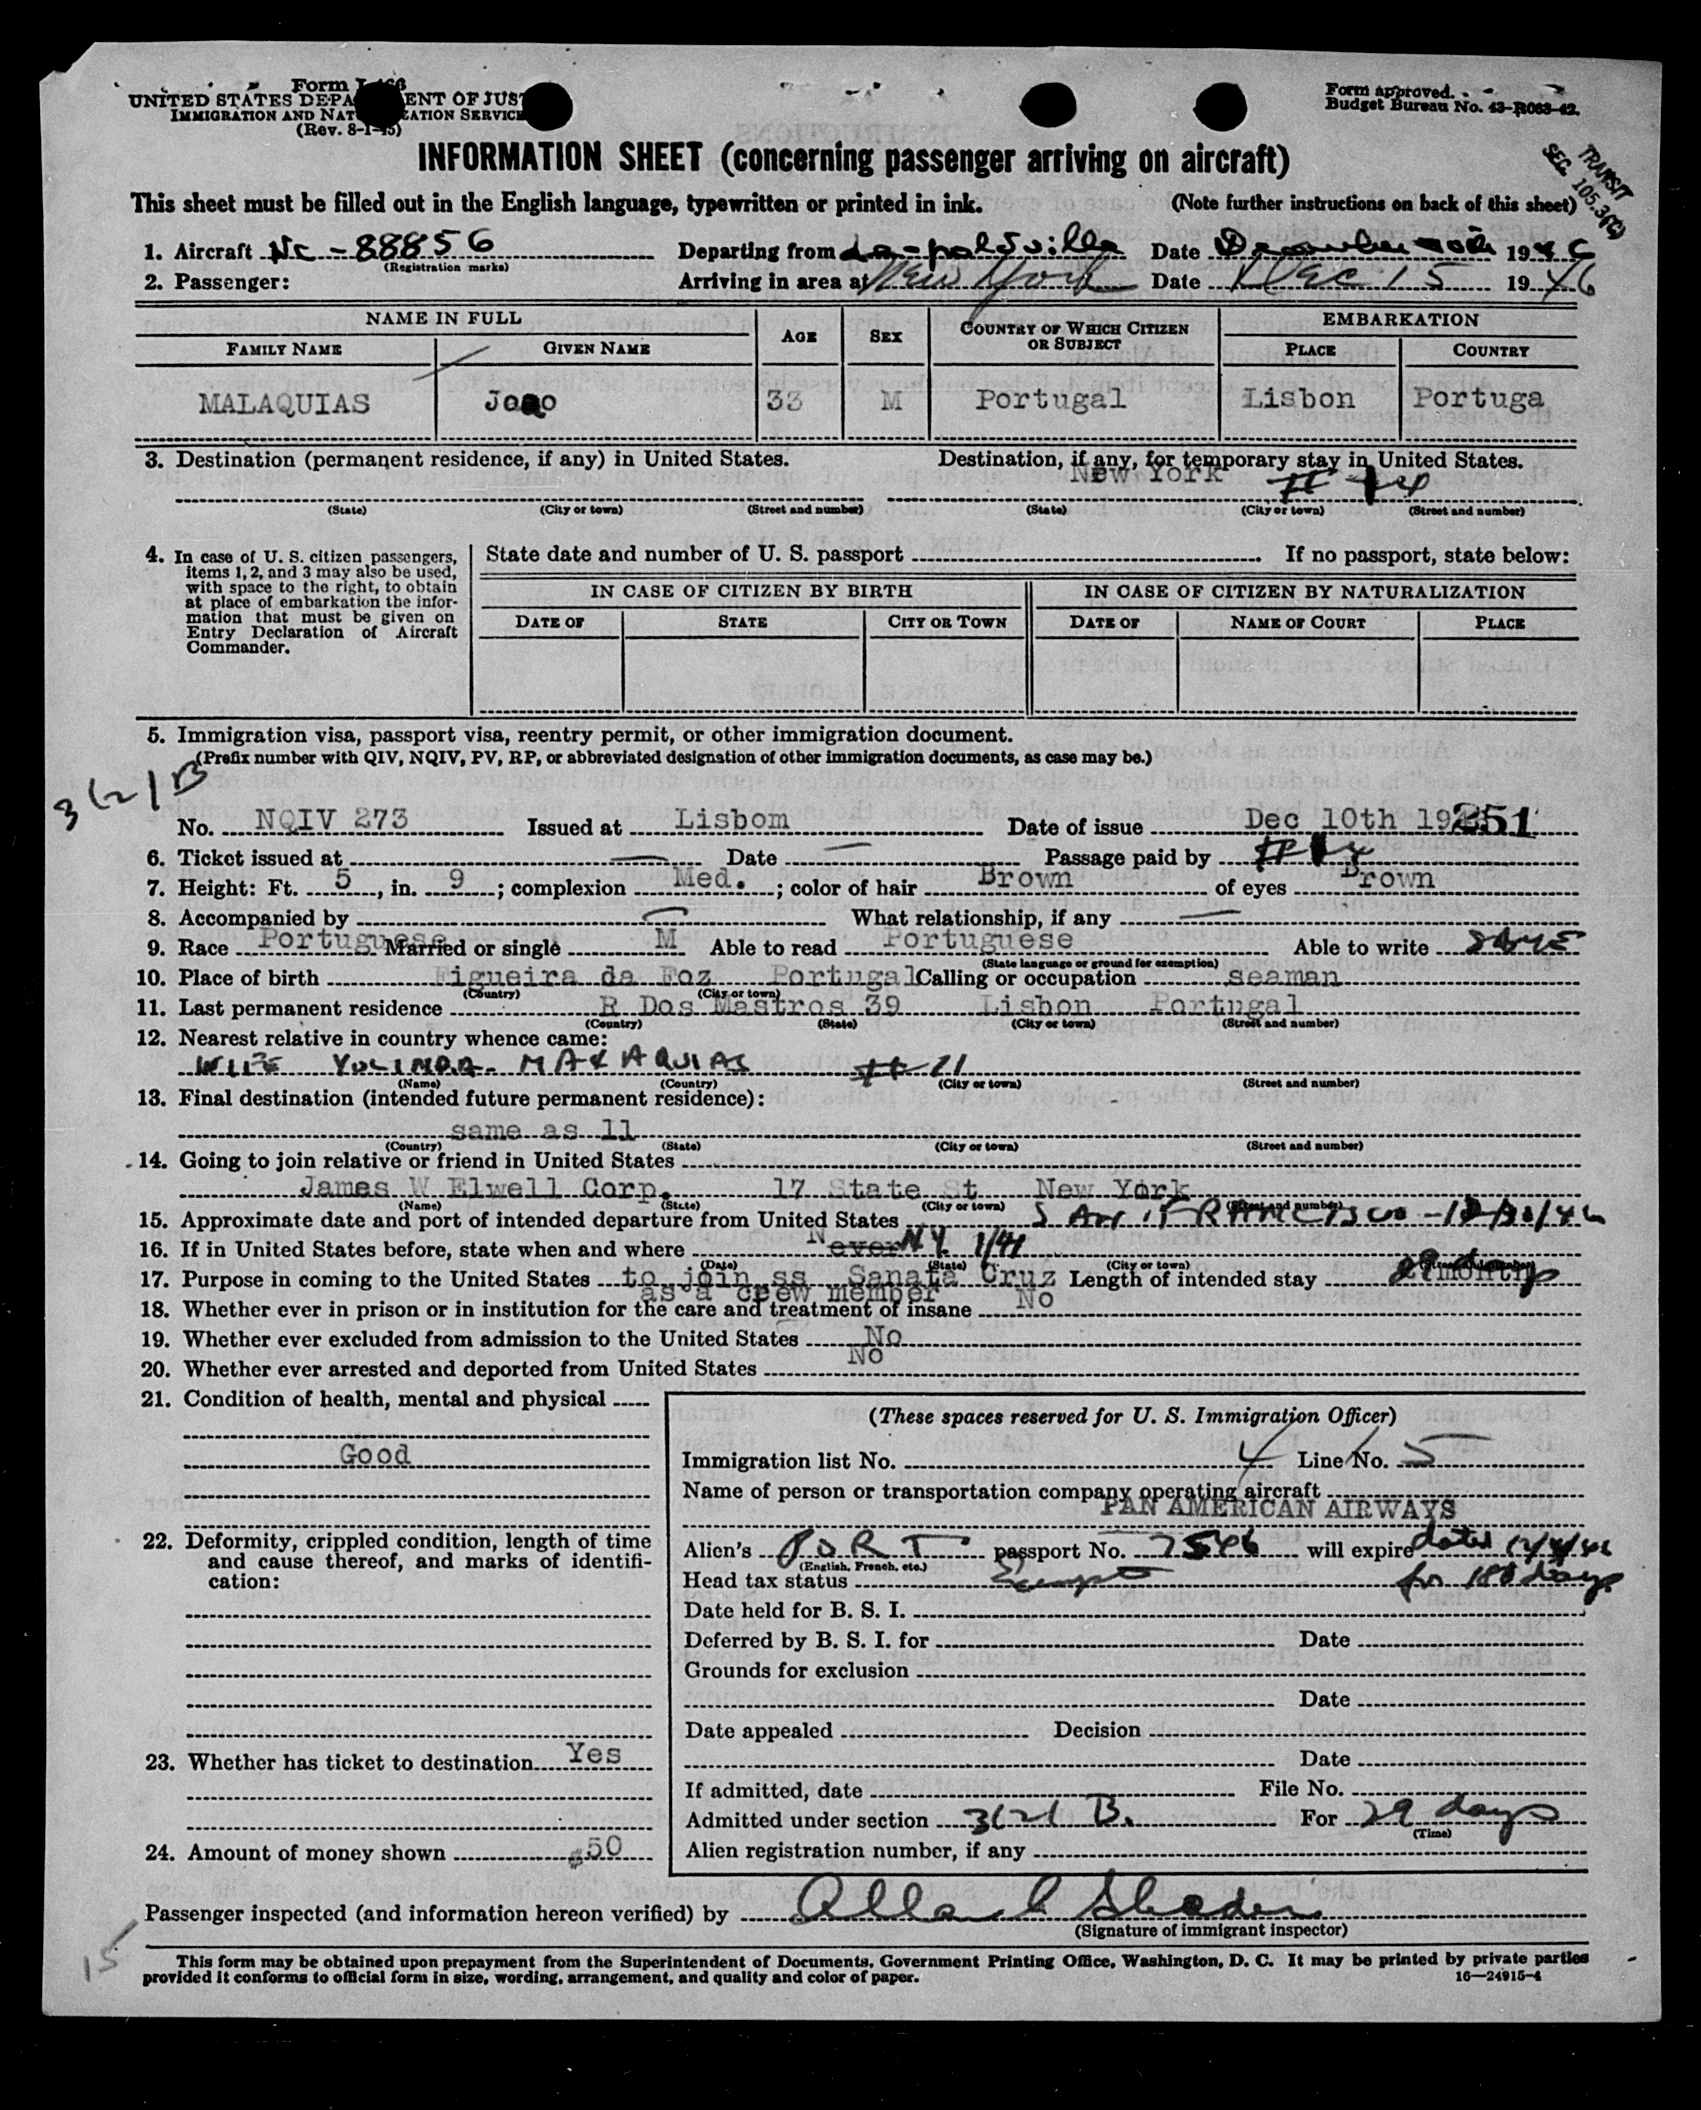 Form I-466
UNITED STATES DEPARTMENT OF JUSTICE
IMMIGRATION AND NATURALIZATION SERVICE
(Rev. 8-1-45)
Form approved.
Budget Bureau No. 43-R063-42.
TRANSIT
SEC. 105.3(C)
INFORMATION SHEET (concerning passenger arriving on aircraft)
This sheet must be filled out in the English language, typewritten or printed in ink. (Note further instructions on back of this sheet)
1. Aircraft Nc-88856 Departing from Date December 1946
(Registration marks)
2. Passenger: Arriving in area at New York Date Dec 15 1946
NAME IN FULL AGE SEX COUNTRY OF WHICH CITIZEN OR SUBJECT EMBARKATION
FAMILY NAME GIVEN NAME PLACE COUNTRY
MALAQUIAS Joao 33 M Portugal Lisbon Portuga
3. Destination (permanent residence, if any) in United States. Destination, if any, for temporary stay in United States.
New York # 14
(State) (City or town) (Street and number) (State) (City or town) (Street and number)
4. In case of U. S. citizen passengers, items 1, 2, and 3 may also be used, with space to the right, to obtain at place of embarkation the information that must be given on Entry Declaration of Aircraft Commander.
State date and number of U. S. passport If no passport, state below:
IN CASE OF CITIZEN BY BIRTH IN CASE OF CITIZEN BY NATURALIZATION
DATE OF STATE CITY OR TOWN DATE OF NAME OF COURT PLACE
5. Immigration visa, passport visa, reentry permit, or other immigration document.
(Prefix number with QIV, NQIV, PV, RP, or abbreviated designation of other immigration documents, as case may be.)
3(2)B
No. NQIV 273 Issued at Lisbom Date of issue Dec 10th 19 251
6. Ticket issued at — Date — Passage paid by # 14
7. Height: Ft. 5, in. 9; complexion Med.; color of hair Brown of eyes Brown
8. Accompanied by — What relationship, if any —
9. Race Portuguese Married or single M Able to read Portuguese Able to write SAME
(State language or ground for exemption)
10. Place of birth Figueira da Foz Portugal Calling or occupation seaman
(Country) (City or town)
11. Last permanent residence R Dos Mastros 39 Lisbon Portugal
(Country) (State) (City or town) (Street and number)
12. Nearest relative in country whence came:
WIFE YOLINDA MALAQUIAS # 11
(Name) (Country) (City or town) (Street and number)
13. Final destination (intended future permanent residence):
same as 11
(Country) (State) (City or town) (Street and number)
14. Going to join relative or friend in United States
James W Elwell Corp. 17 State St New York
(Name) (State) (City or town) (Street and number)
15. Approximate date and port of intended departure from United States SAN FRANCISCO - 12/30/46
16. If in United States before, state when and where Never N.Y. 1/41
(Date) (State) (City or town) (Street and number)
17. Purpose in coming to the United States to join ss Sanata Cruz Length of intended stay 29 days
as a crew member
18. Whether ever in prison or in institution for the care and treatment of insane No
19. Whether ever excluded from admission to the United States No
20. Whether ever arrested and deported from United States No
21. Condition of health, mental and physical
Good
22. Deformity, crippled condition, length of time and cause thereof, and marks of identification:
23. Whether has ticket to destination Yes
24. Amount of money shown $50
(These spaces reserved for U. S. Immigration Officer)
Immigration list No. 4 Line No. 5
Name of person or transportation company operating aircraft
PAN AMERICAN AIRWAYS
Alien's PORT passport No. 7546 will expire dated 12/4/46
(English, French, etc.)
Head tax status Exempt for 180 days
Date held for B. S. I.
Deferred by B. S. I. for Date
Grounds for exclusion
Date
Date appealed Decision
Date
If admitted, date File No.
Admitted under section 3(2) B. For 29 days
(Time)
Alien registration number, if any
Passenger inspected (and information hereon verified) by
(Signature of immigrant inspector)
15
This form may be obtained upon prepayment from the Superintendent of Documents, Government Printing Office, Washington, D. C. It may be printed by private parties
provided it conforms to official form in size, wording, arrangement, and quality and color of paper. 16—24915-4